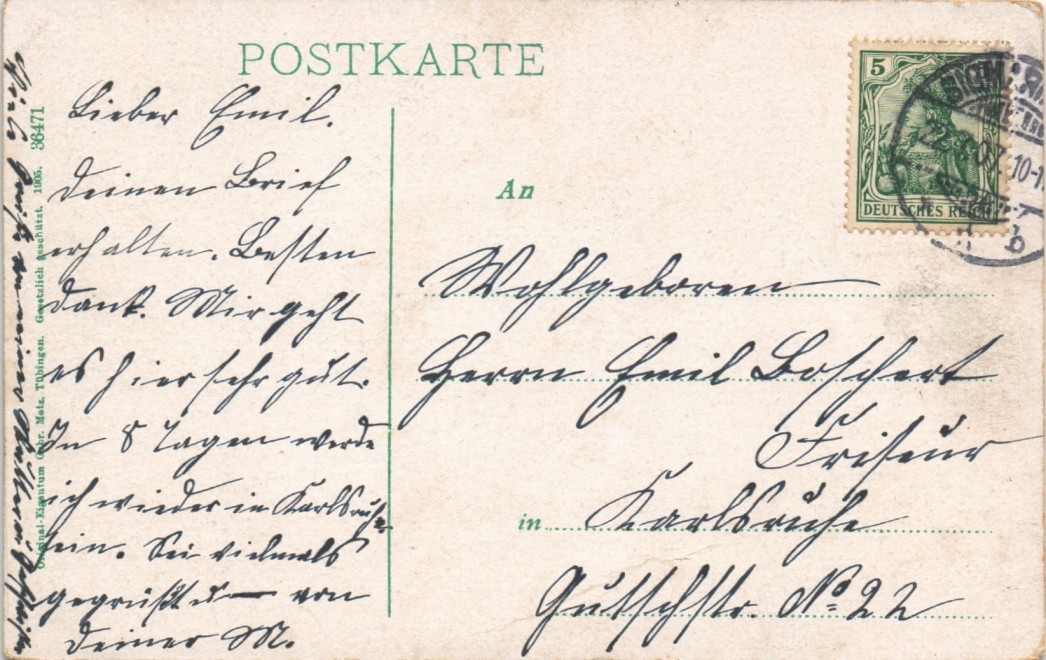 POSTKARTE
Lieber Emil.
Deinen Brief
erhalten. Besten
Dank. Mir geht
es hier sehr gut.
In 8 Tagen werde
ich wieder in Karlsruhe
sein. Sei vielmals
gegrüßt u von
Deiner M.
Original-Eigentum Gebr. Metz, Tübingen. Gesetzlich geschützt. 1905. 36471
Viele Grüße an meine
5
DEUTSCHES REICH
SIGMARIN
22 07 10-1
b
An
Wohlgeboren
Herrn Emil Boschert
Friseur
in Karlsruhe
Gutschstr. No 22